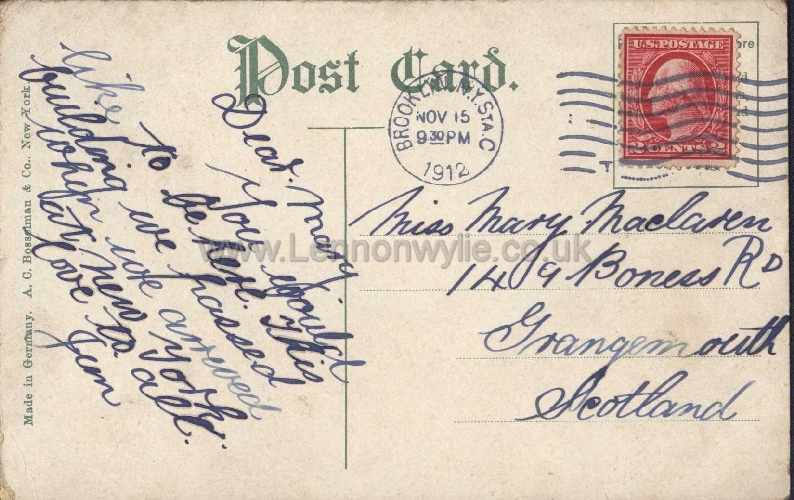 Post Card.
Made in Germany. A. C. Bosselman & Co., New York.
BROOKLYN, N.Y. STA. C
NOV 15
9 30 PM
1912
U.S. POSTAGE
2 CENTS 2
Dear. Mary
You would
like to be here. This
building we passed
when we arrived
at New York
love to all.
Jim
Miss Mary Maclaren
149 Boness RD
Grangemouth
Scotland
www.Lennonwylie.co.uk